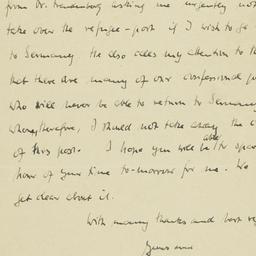 from Dr. Freudenberg asking me urgently not
take over the refugee-post if I wish to go
to Germany. He also calls my attention to the
that there are many of our confessional p
who will never be able to return to Germany
whom, therefore, I should not take away the c
of this post. I hope you will be able to spare
hour of your time to-morrow for me. We
get clear about it.
With many thanks and best re
Yours